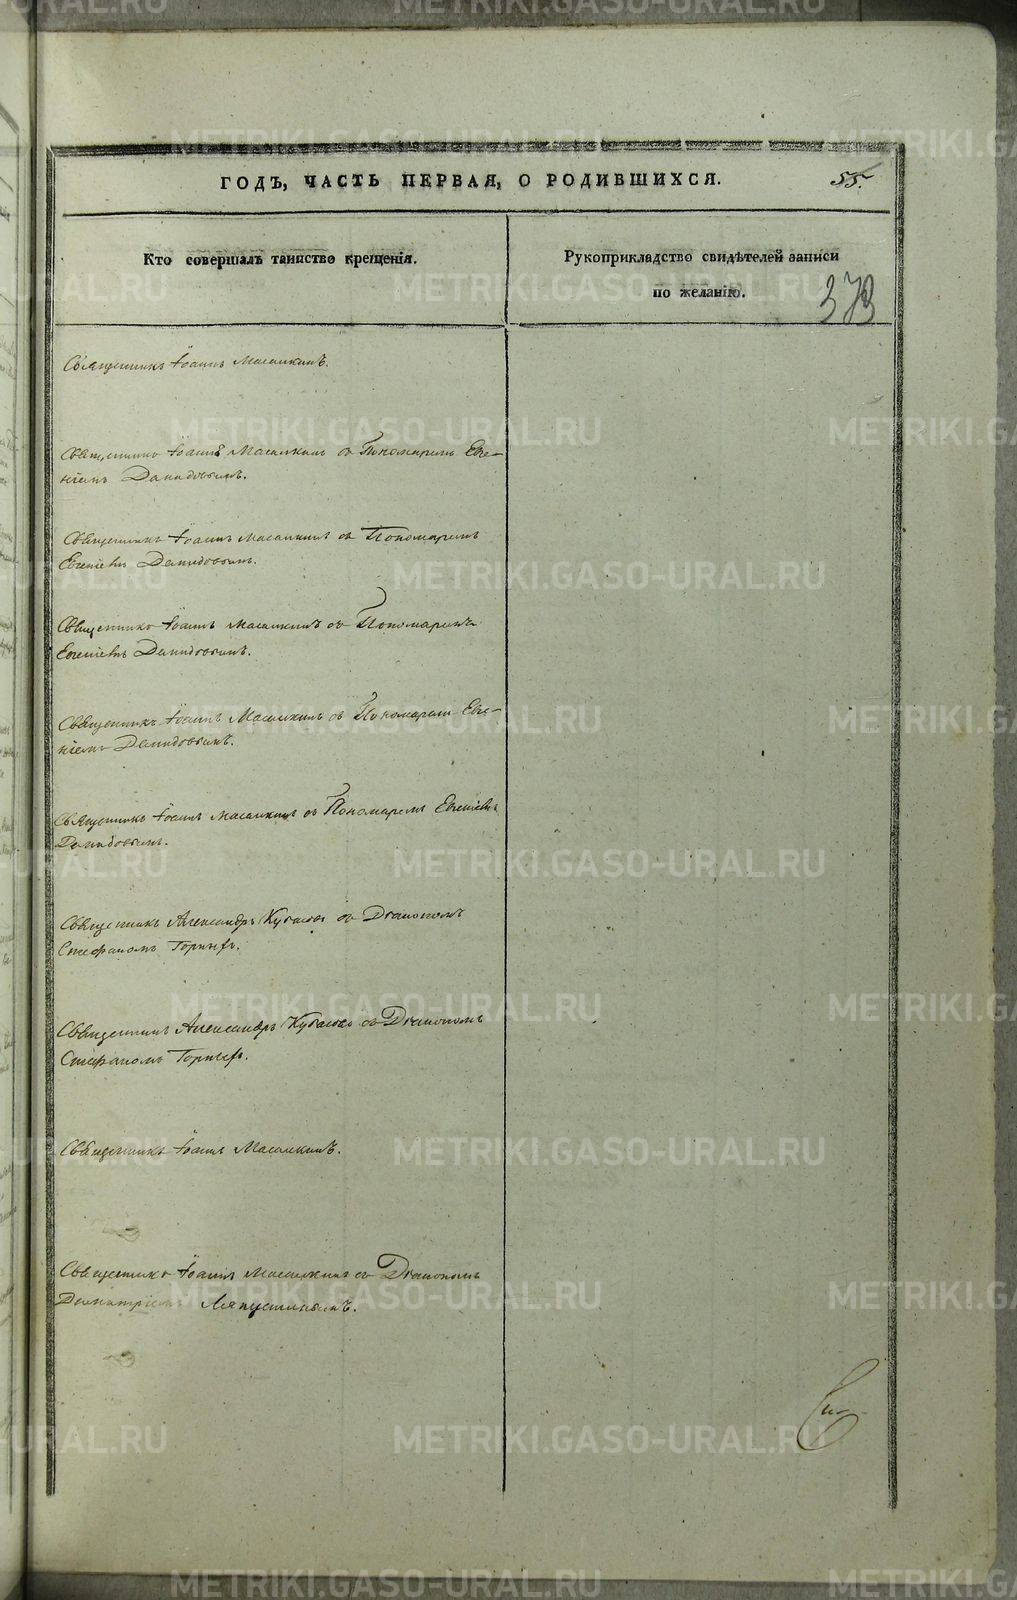 ГОДЪ, ЧАСТЬ ПЕРВАЯ, О РОДИВШИХСЯ.
55.
Кто совершалъ таинство крещенія.
Рукоприкладство свидѣтелей записи
по желанію.
373
Священникъ Іоаннъ Масалкинъ.
Священникъ Іоаннъ Масалкинъ съ Пономаремъ Евге-
ніемъ Давидовымъ.
Священникъ Іоаннъ Масалкинъ съ Пономаремъ
Евгеніемъ Давидовымъ.
Священникъ Іоаннъ Масалкинъ съ Пономаремъ
Евгеніемъ Давидовымъ.
Священникъ Іоаннъ Масалкинъ съ Пономаремъ Евге-
ніемъ Давидовымъ.
Священникъ Іоаннъ Масалкинъ съ Пономаремъ Евгеніемъ
Давидовымъ.
Священникъ Александръ съ Діакономъ
Стефаномъ
Священникъ Александръ съ Діакономъ
Стефаномъ
Священникъ Іоаннъ Масалкинъ.
Священникъ Іоаннъ Масалкинъ съ Діакономъ
Димитріемъ Ляпустинымъ.
METRIKI.GASO-URAL.RU